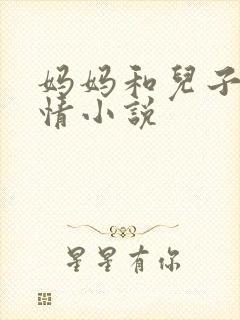 妈妈和兒子
情小说
星星有你